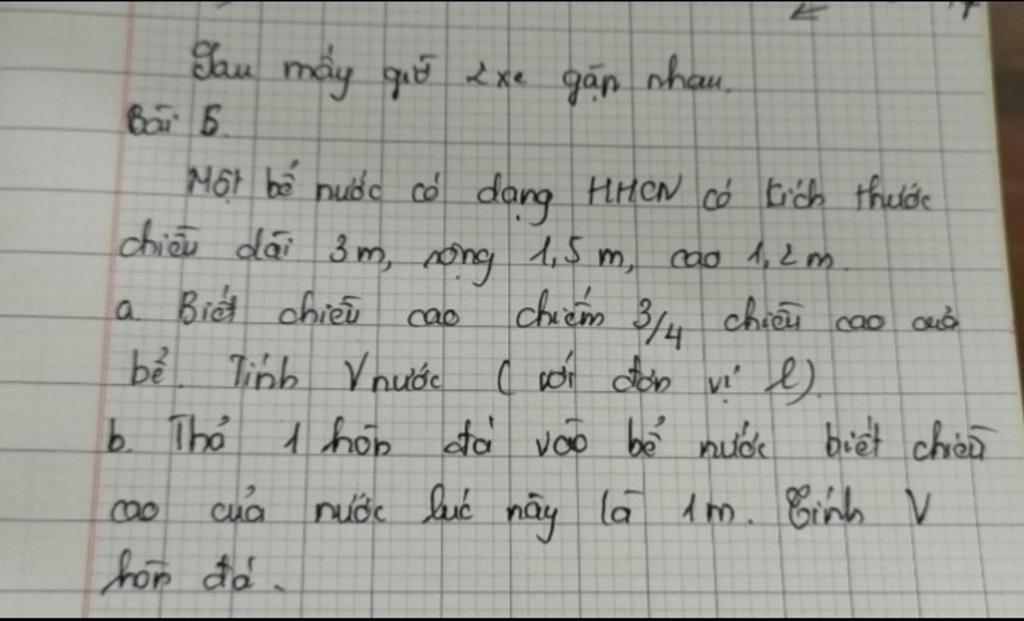 Sau mấy giờ 2 xe gặp nhau.
Bài 5.
Một bể nước có dạng HHCN có kích thước
chiều dài 3m, rộng 1,5 m, cao 1,2m.
a. Biết chiều cao chiếm 3/4 chiều cao của
bể. Tính V nước ( với đơn vị l)
b. Thả 1 hòn đá vào bể nước biết chiều
cao của nước lúc này là 1m. Tính V
hòn đá.